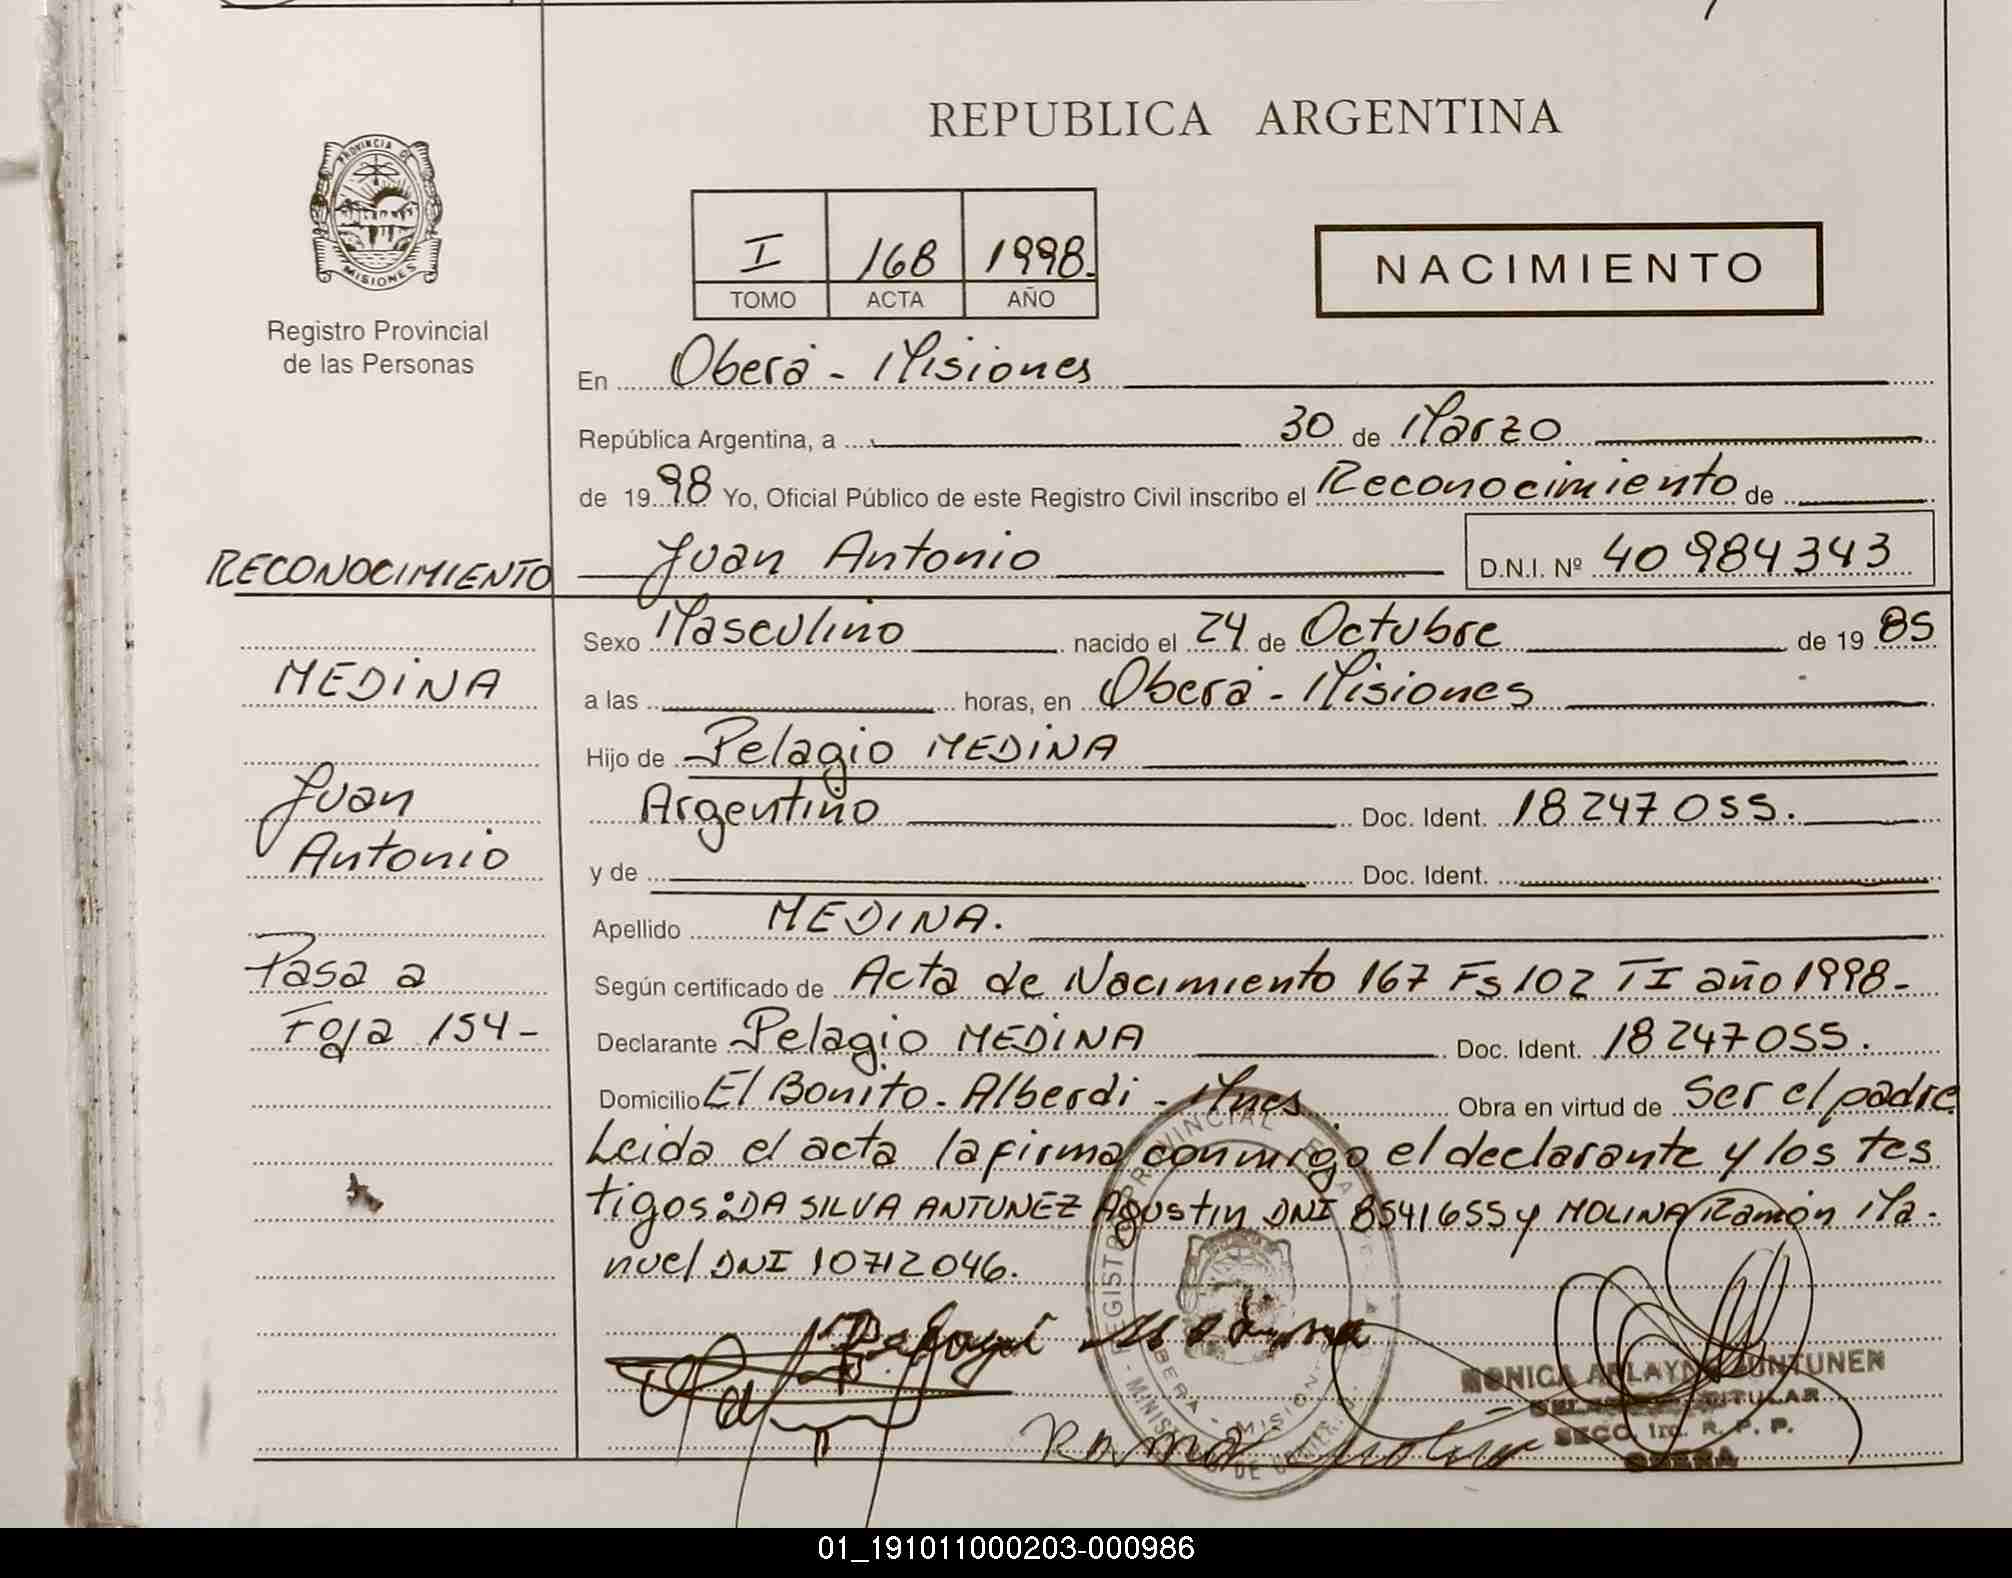 REPUBLICA ARGENTINA
PROVINCIA DE
MISIONES
Registro Provincial
de las Personas
I 168 1998.
TOMO ACTA AÑO
NACIMIENTO
En Oberá - Misiones
República Argentina, a 30 de Marzo
de 1998 Yo, Oficial Público de este Registro Civil inscribo el Reconocimiento de
RECONOCIMIENTO
Juan Antonio D.N.I. Nº 40984343
Sexo Masculino nacido el 24 de Octubre de 1985
MEDINA
a las horas, en Oberá - Misiones
Hijo de Pelagio MEDINA
Juan
Antonio
Argentino Doc. Ident. 18247055.
y de Doc. Ident.
Apellido MEDINA.
Pasa a
Foja 154-
Según certificado de Acta de Nacimiento 167 Fs 102 TI año 1998-
Declarante Pelagio MEDINA Doc. Ident. 18247055.
Domicilio El Bonito - Alberdi - Mnes Obra en virtud de Ser el padre
Leida el acta la firma conmigo el declarante y los tes
tigos: DA SILVA ANTUNEZ Agustin DNI 8541655 y MOLINA Ramón Ma-
nuel DNI 10712046.
MONICA JUNTUNEN
TITULAR
SECC. 1ra. R. P. P.
OBERA
01_191011000203-000986